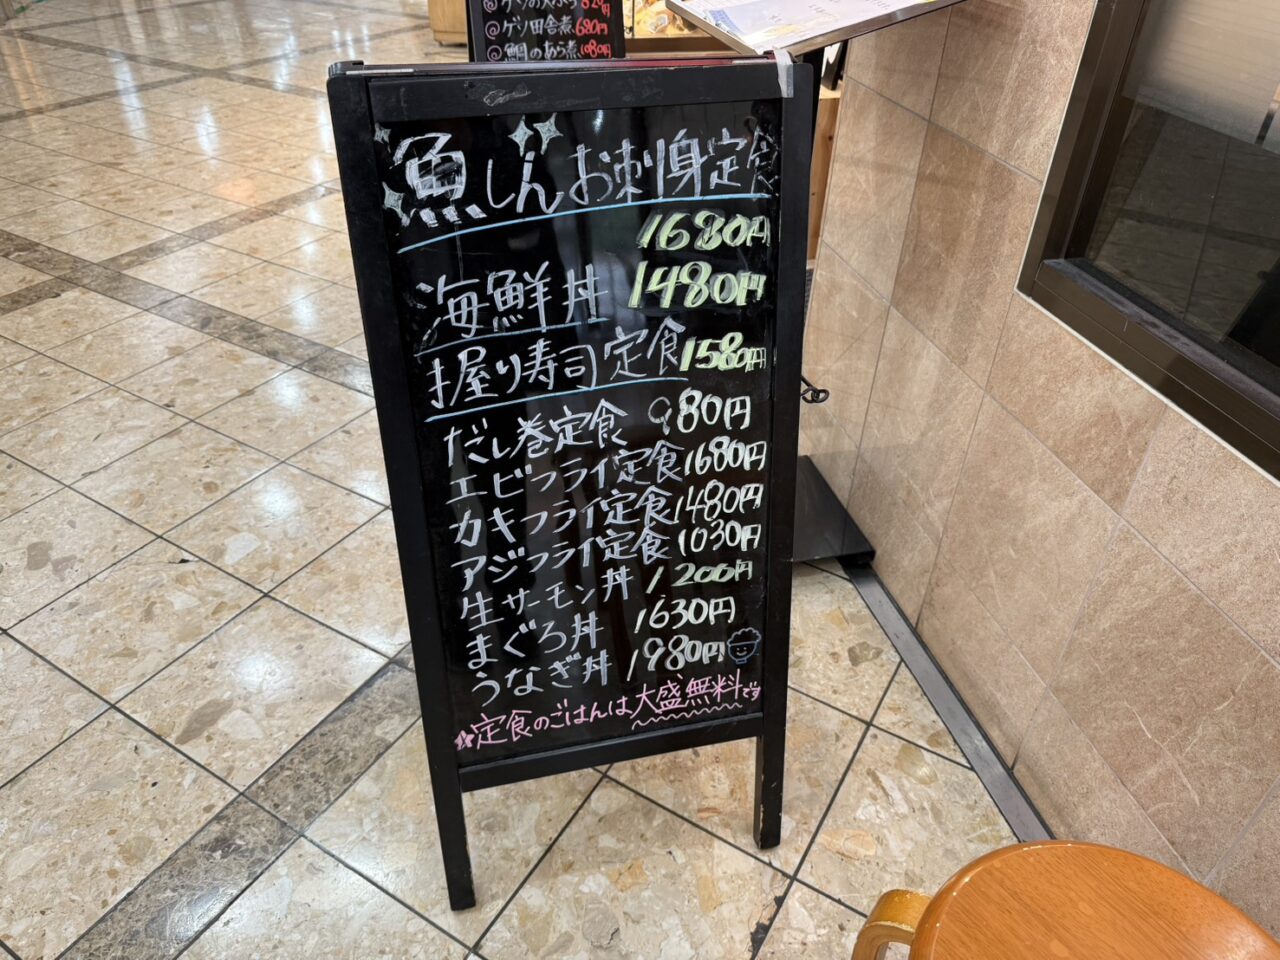 ゲソの天ぷら 820円
ゲソ田舎煮 680円
鯛のあら煮 1080円
魚しん お刺身定食
1680円
海鮮丼 1480円
握り寿司定食 1580円
だし巻定食 980円
エビフライ定食 1680円
カキフライ定食 1480円
アジフライ定食 1030円
生サーモン丼 1200円
まぐろ丼 1630円
うなぎ丼 1980円
☆定食のごはんは大盛無料です